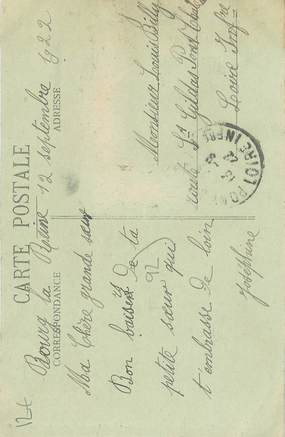 CARTE POSTALE
CORRESPONDANCE
ADRESSE
Bourg la Reine 12 septembre 1922
Ma Chère grande sœur
Bon baiser de ta
petite sœur qui
t'embrasse de loin
Joséphine
Monsieur Louis Billy
route St Gildas Pont Château
Loire Infre